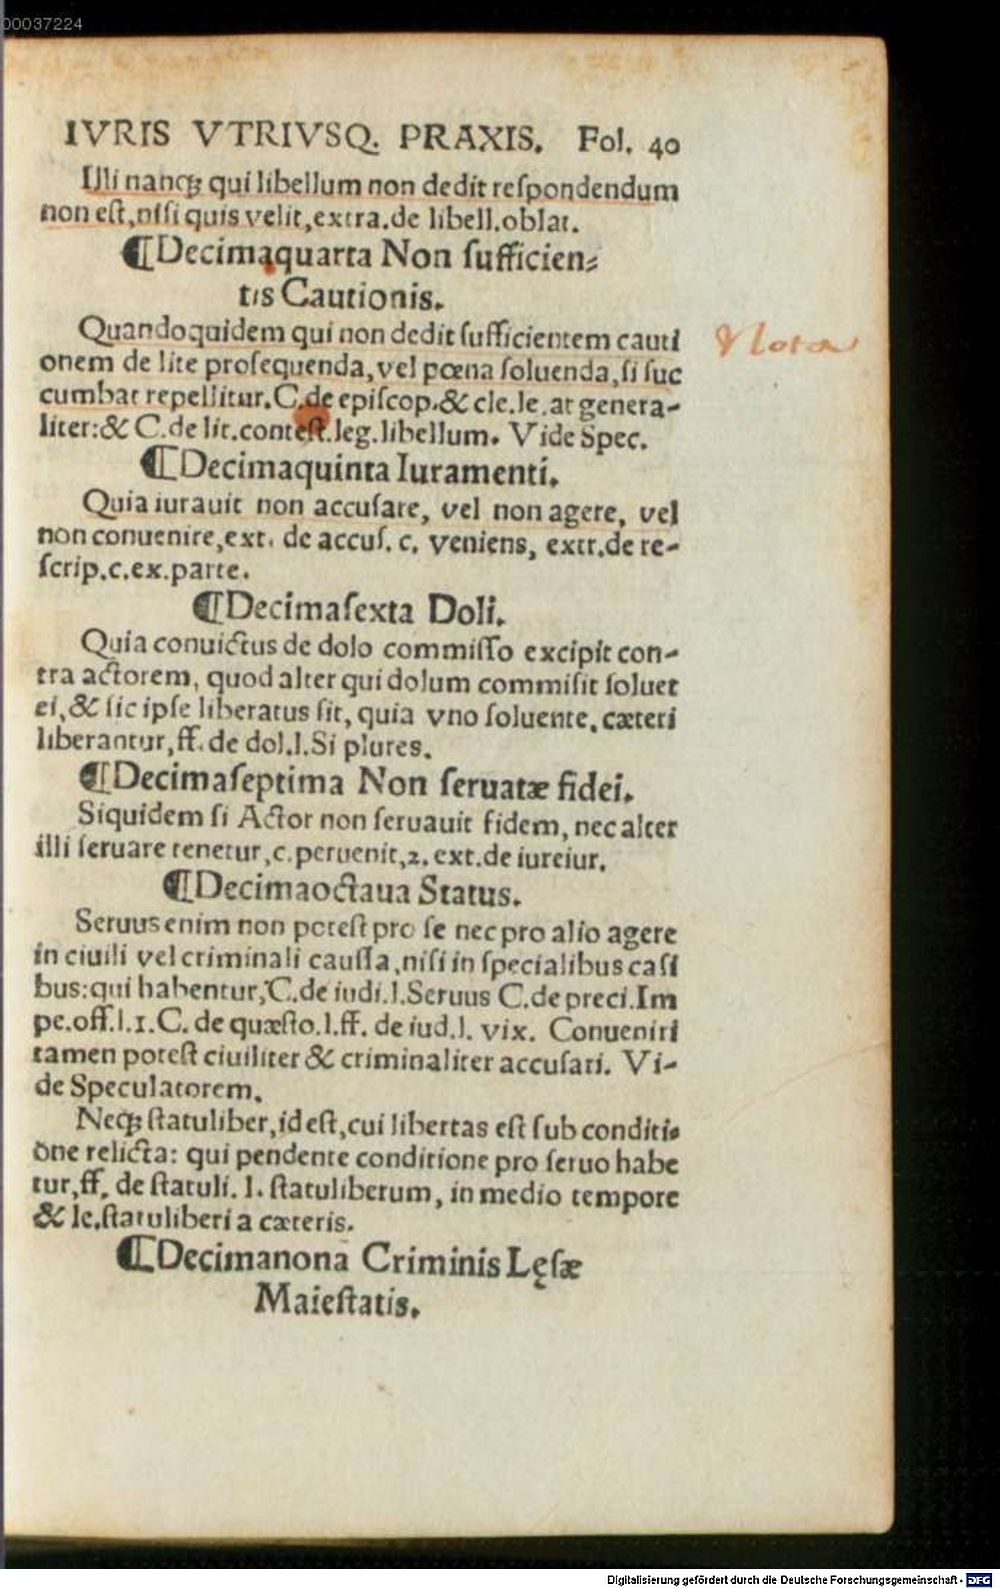 00037224
IVRIS VTRIVSQ. PRAXIS. Fol. 40
Illi nanq; qui libellum non dedit reſpondendum
non eſt, niſi quis velit, extra. de libell. oblat.
¶Decimaquarta Non ſufficien⸗
tis Cautionis.
Quandoquidem qui non dedit ſufficientem cauti
onem de lite proſequenda, vel pœna ſoluenda, ſi ſuc
cumbat repellitur. C. de epiſcop. & cle. le. at genera-
liter: & C. de lit. conteſt. leg. libellum. Vide Spec.
Nota
¶Decimaquinta Iuramenti.
Quia iurauit non accuſare, vel non agere, vel
non conuenire, ext. de accuſ. c. veniens, extr. de re-
ſcrip. c. ex. parte.
¶Decimaſexta Doli.
Quia conuictus de dolo commiſſo excipit con-
tra actorem, quod alter qui dolum commiſit ſoluet
ei, & ſic ipſe liberatus ſit, quia vno ſoluente, cæteri
liberantur, ff. de dol. l. Si plures.
¶Decimaſeptima Non ſeruatæ fidei.
Siquidem ſi Actor non ſeruauit fidem, nec alter
illi ſeruare tenetur, c. peruenit, 2. ext. de iureiur.
¶Decimaoctaua Status.
Seruus enim non poteſt pro ſe nec pro alio agere
in ciuili vel criminali cauſſa, niſi in ſpecialibus caſi
bus: qui habentur, C. de iudi. l. Seruus C. de preci. Im
pe. off. l. 1. C. de quæſto. l. ff. de iud. l. vix. Conueniri
tamen poteſt ciuiliter & criminaliter accuſari. Vi-
de Speculatorem.
Neq; ſtatuliber, id eſt, cui libertas eſt ſub conditi⸗
one relicta: qui pendente conditione pro ſeruo habe
tur, ff. de ſtatuli. l. ſtatuliberum, in medio tempore
& le. ſtatuliberi a cæteris.
¶Decimanona Criminis Lęſæ
Maieſtatis.
Digitalisierung gefördert durch die Deutsche Forschungsgemeinschaft - DFG